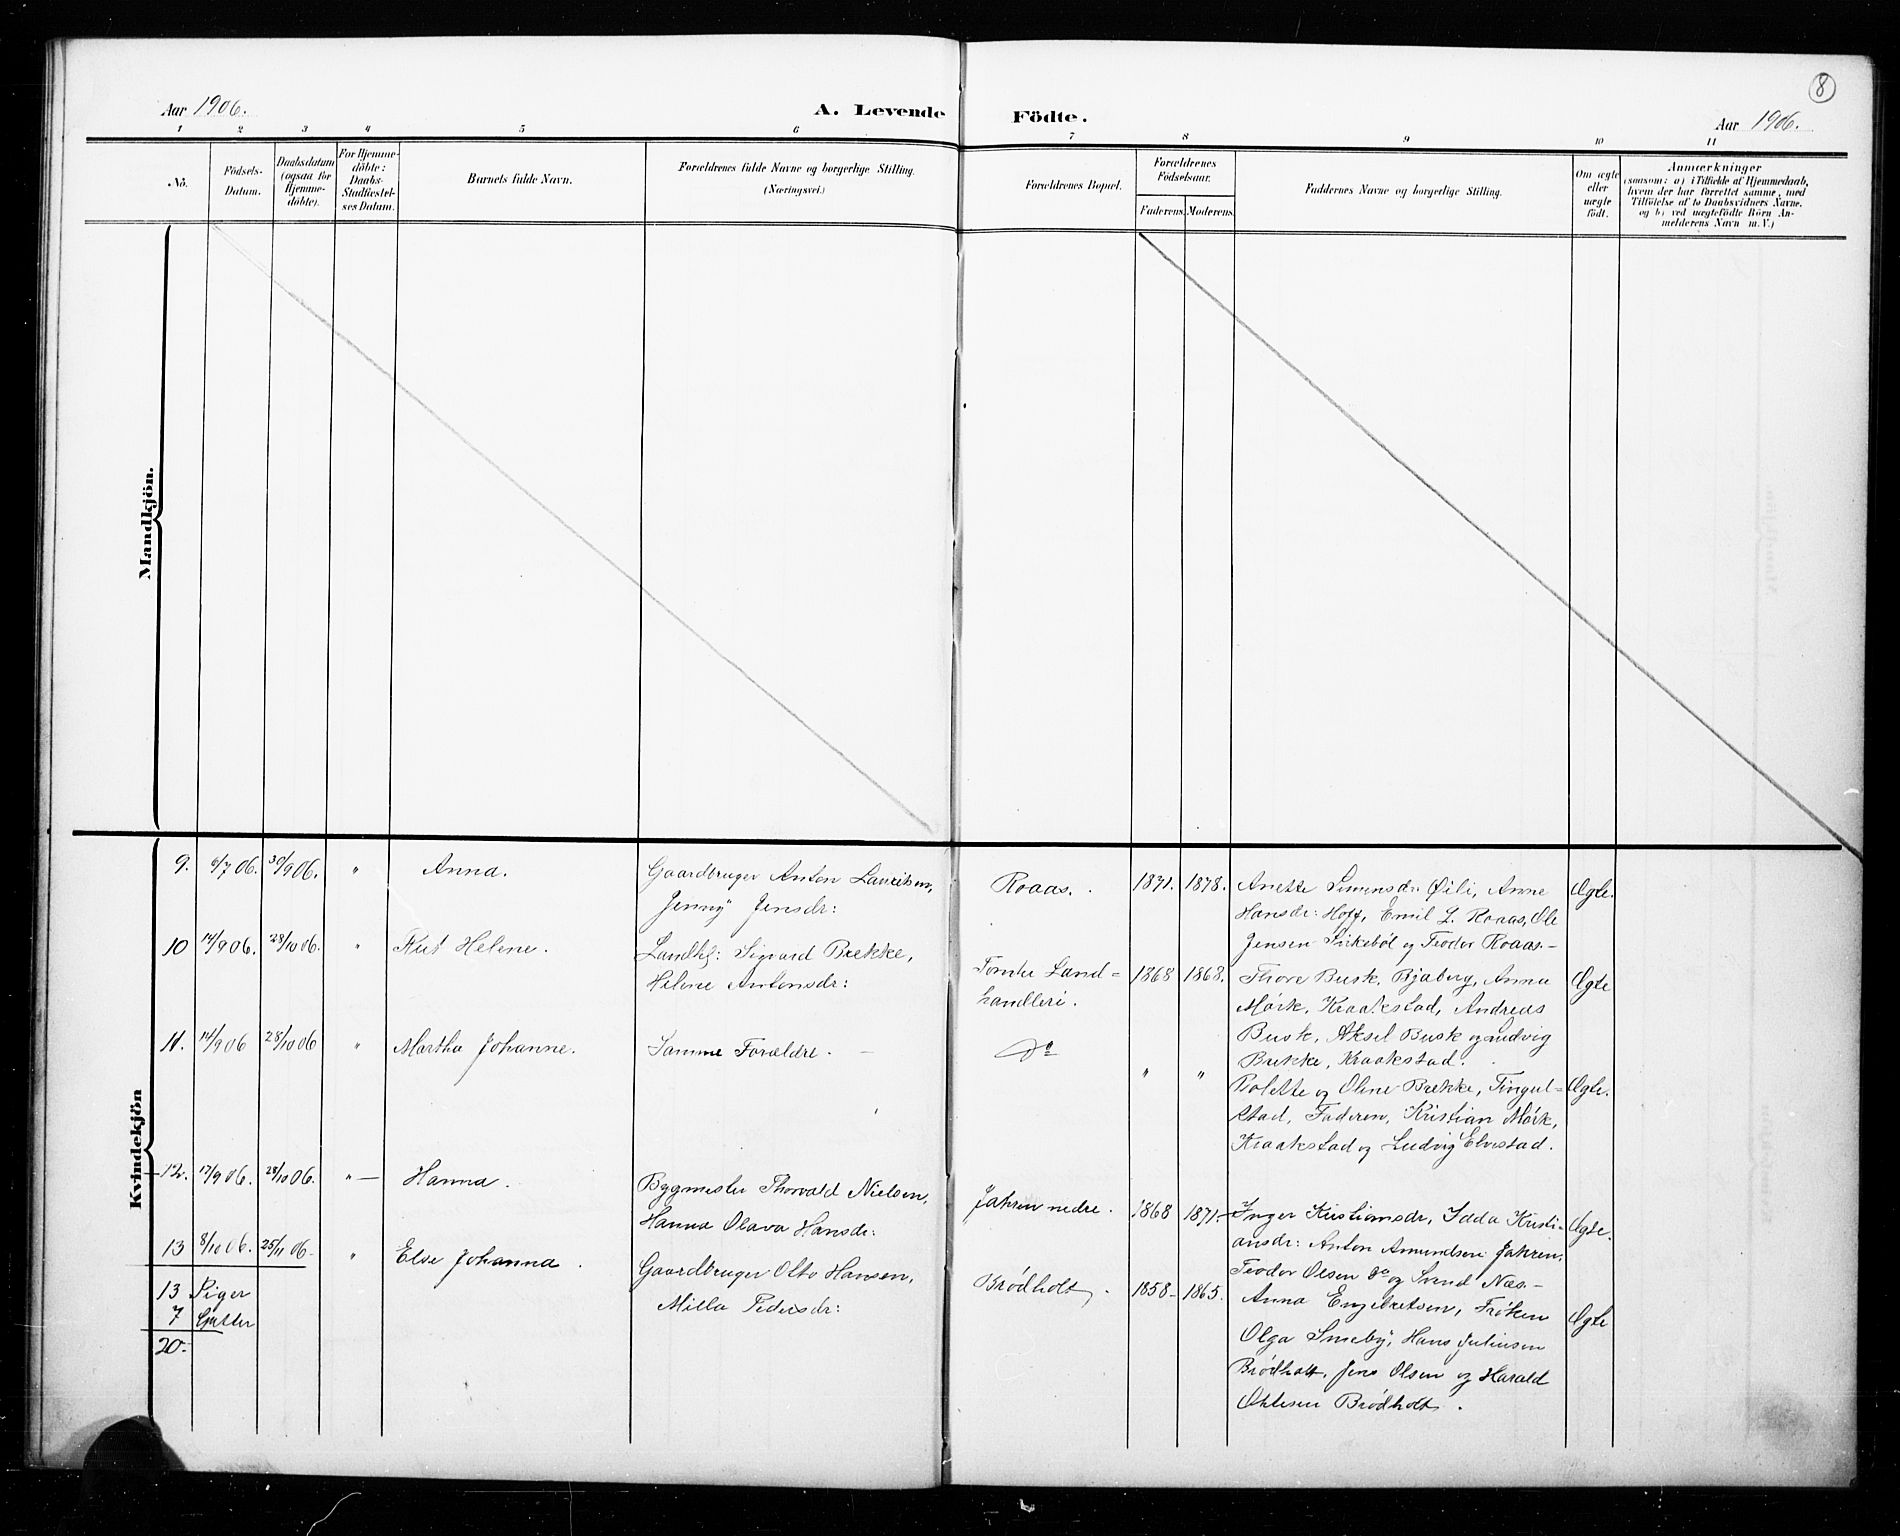 8
Aar 1906.
A. Levende Födte.
Aar 1906.
1 2 3 4 5 6 7 8 9 10 11
No.
Födsels-
Datum.
Daabsdatum
(ogsaa for
Hjemme-
döbte).
For Hjemme-
döbte:
Daabs-
Stadfæstel-
ses Datum.
Barnets fulde Navn.
Forældrenes fulde Navne og borgerlige Stilling.
(Næringsvei.)
Forældrenes Bopæl.
Forældrenes
Födselsaar.
Faderens. Moderens.
Faddernes Navne og borgerlige Stilling.
Om ægte
eller
uægte
födt.
Anmærkninger
(saasom: a) i Tilfælde af Hjemmedaab,
hvem der har forrettet samme, med
Tilföielse af to Daabsvidners Navne.
og b) ved uægtefödte Börn An-
melderens Navn m.V.)
Mandkjön.
Kvindekjön
9. 6/7 06. 30/9 06. " Anna.
Gaardbruger Anton Lauritsen,
Jenny Jensdr:
Roaas.
1871. 1878.
Anette Simensdr: Øili, Anne
Hansdr: Hoff, Emil L. Roaas, Ole
Jensen Sirkeböl og Teodor Roaas-
Ægte.
10 14/9 06. 28/10 06. " Rut Helene.
Landh: Sigvard Brekke,
Helene Antonsdr:
Tomter Land=
handleri.
1868 1868.
Thore Busk, Bjaberg, Anna
Mörk, Kraakstad, Andreas
Busk, Aksel Busk og Ludvig
Brekke, Kraakstad.
Ægte
11. 14/9 06 28/10 06 " Martha Johanne.
Samme Forældre. —
Do
" "
Bolette og Oline Brekke, Tingul=
stad, Faderen, Kristian Mörk,
Kraakstad og Ludvig Elvestad.
Ægte.
12. 17/9 06. 28/10 06. "— Hanna.
Bygmester Thorvald Nielsen,
Hanna Olava Hansdr:
Jahren nedre.
1868 1871.
Inger Kristiansdr, Idda Kristi-
ansdr: Anton Amundsen Jahren,
Teodor Olsen do og Svend Næs-
Ægte.
13 8/10 06. 25/11 06- " Else Johanna.
Gaardbruger Otto Hansen,
Milla Pedersdr:
Brödholt.
1858- 1865.
Anna Engebretsen, Fröken
Olga Smeby, Hans Juliusen
Brödholt, Jens Olsen og Harald
Ottesen Brödholt.
Ægte
13 Piger
7 Gutter
20-